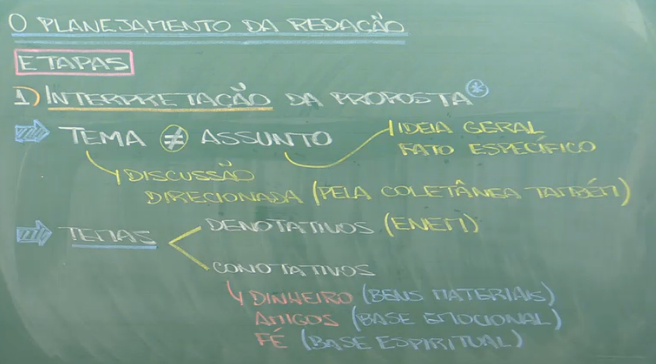 O PLANEJAMENTO DA REDAÇÃO
ETAPAS
1) INTERPRETAÇÃO DA PROPOSTA *
TEMA ≠ ASSUNTO
IDEIA GERAL
FATO ESPECÍFICO
DISCUSSÃO
DIRECIONADA (PELA COLETÂNEA TAMBÉM)
TEMAS
DENOTATIVOS (ENEM)
CONOTATIVOS
DINHEIRO (BENS MATERIAIS)
AMIGOS (BASE EMOCIONAL)
FÉ (BASE ESPIRITUAL)